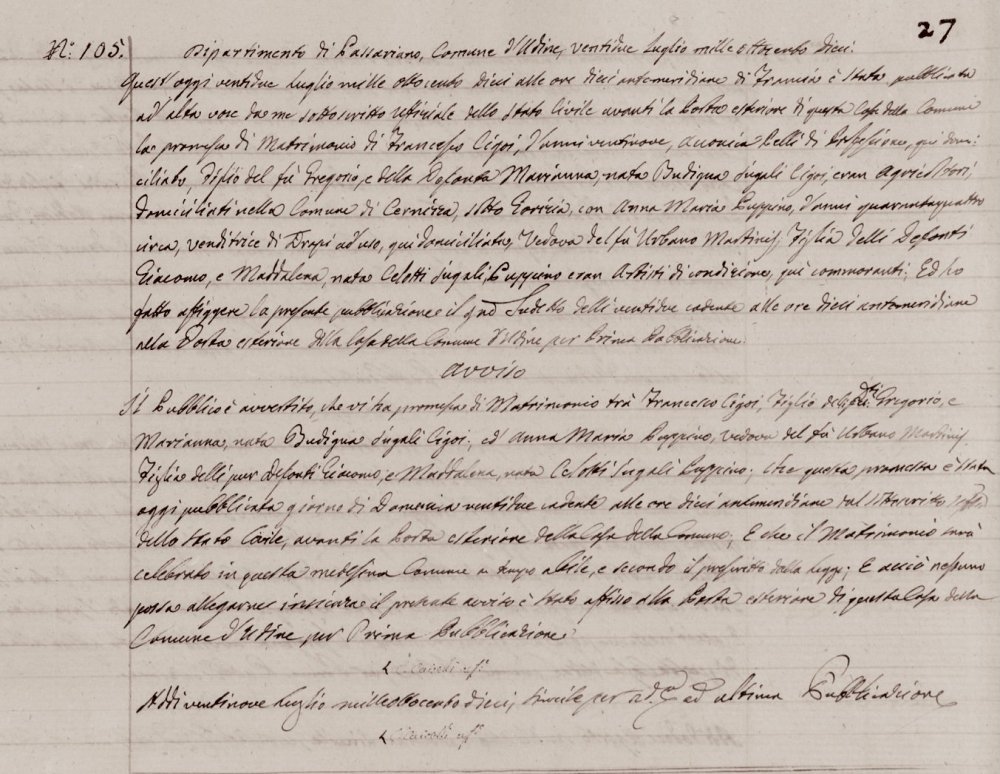 27
N.º 105.
Dipartimento di Passariano, Comune d'Udine, ventidue Luglio mille ottocento dieci.
Quest'oggi ventidue Luglio mille ottocento dieci alle ore dieci antemeridiane di Francia è stata pubblicata
ad alta voce da me sottoscritto Uffiziale dello Stato Civile avanti la Porta esteriore di questa Casa della Comune
la promessa di Matrimonio di Francesco Cigoi, d'anni ventinove, Pelli di Professione, qui domi:
ciliato, Figlio del fù Gregorio, e della Defonta Marianna, nata Budigna Jugali Cigoi, eran Agricoltori,
domiciliati nella Comune di sotto Gorizia, con Anna Maria Puppino, d'anni quarantaquattro
circa, venditrice di Drapi ad uso, qui domiciliata, Vedova del fù Urbano Martinis, Figlia delli Defonti
Giacomo, e Maddalena, nata Celotti Jugali Puppino eran Artisti di condizione, qui commoranti; Ed ho
fatto affiggere la presente pubblicazione il Sudetto delli ventidue cadente alle ore dieci antemeridiane
nella Porta esteriore della Casa della Comune d'Udine per Prima Pubblicazione.
Avviso
Il Pubblico è avvertito, che vi ha promessa di Matrimonio trà Francesco Cigoi, Figlio delli Dti Gregorio, e
Marianna, nata Budigna Jugali Cigoi; ed Anna Maria Puppino, vedova del fù Urbano Martinis,
Figlia delli pur Defonti Giacomo, e Maddalena, nata Celotti Jugali Puppino; che questa promessa è stata
oggi pubblicata giorno di Domenica ventidue cadente alle ore dieci antemeridiane dal sottoscritto
dello Stato Civile, avanti la Porta esteriore della Casa della Comune; E che il Matrimonio sarà
celebrato in questa medesima Comune a tempo abile, e secondo il prescritto dalla Legge; E acciò nessuno
possa allegarne insienza il presente avviso è stato affisso alla Porta esteriore di questa Casa della
Comune d'Udine, per Prima Pubblicazione.
Addi ventinove Luglio milleottocento dieci, simile per 2.da ed ultima Pubblicazione